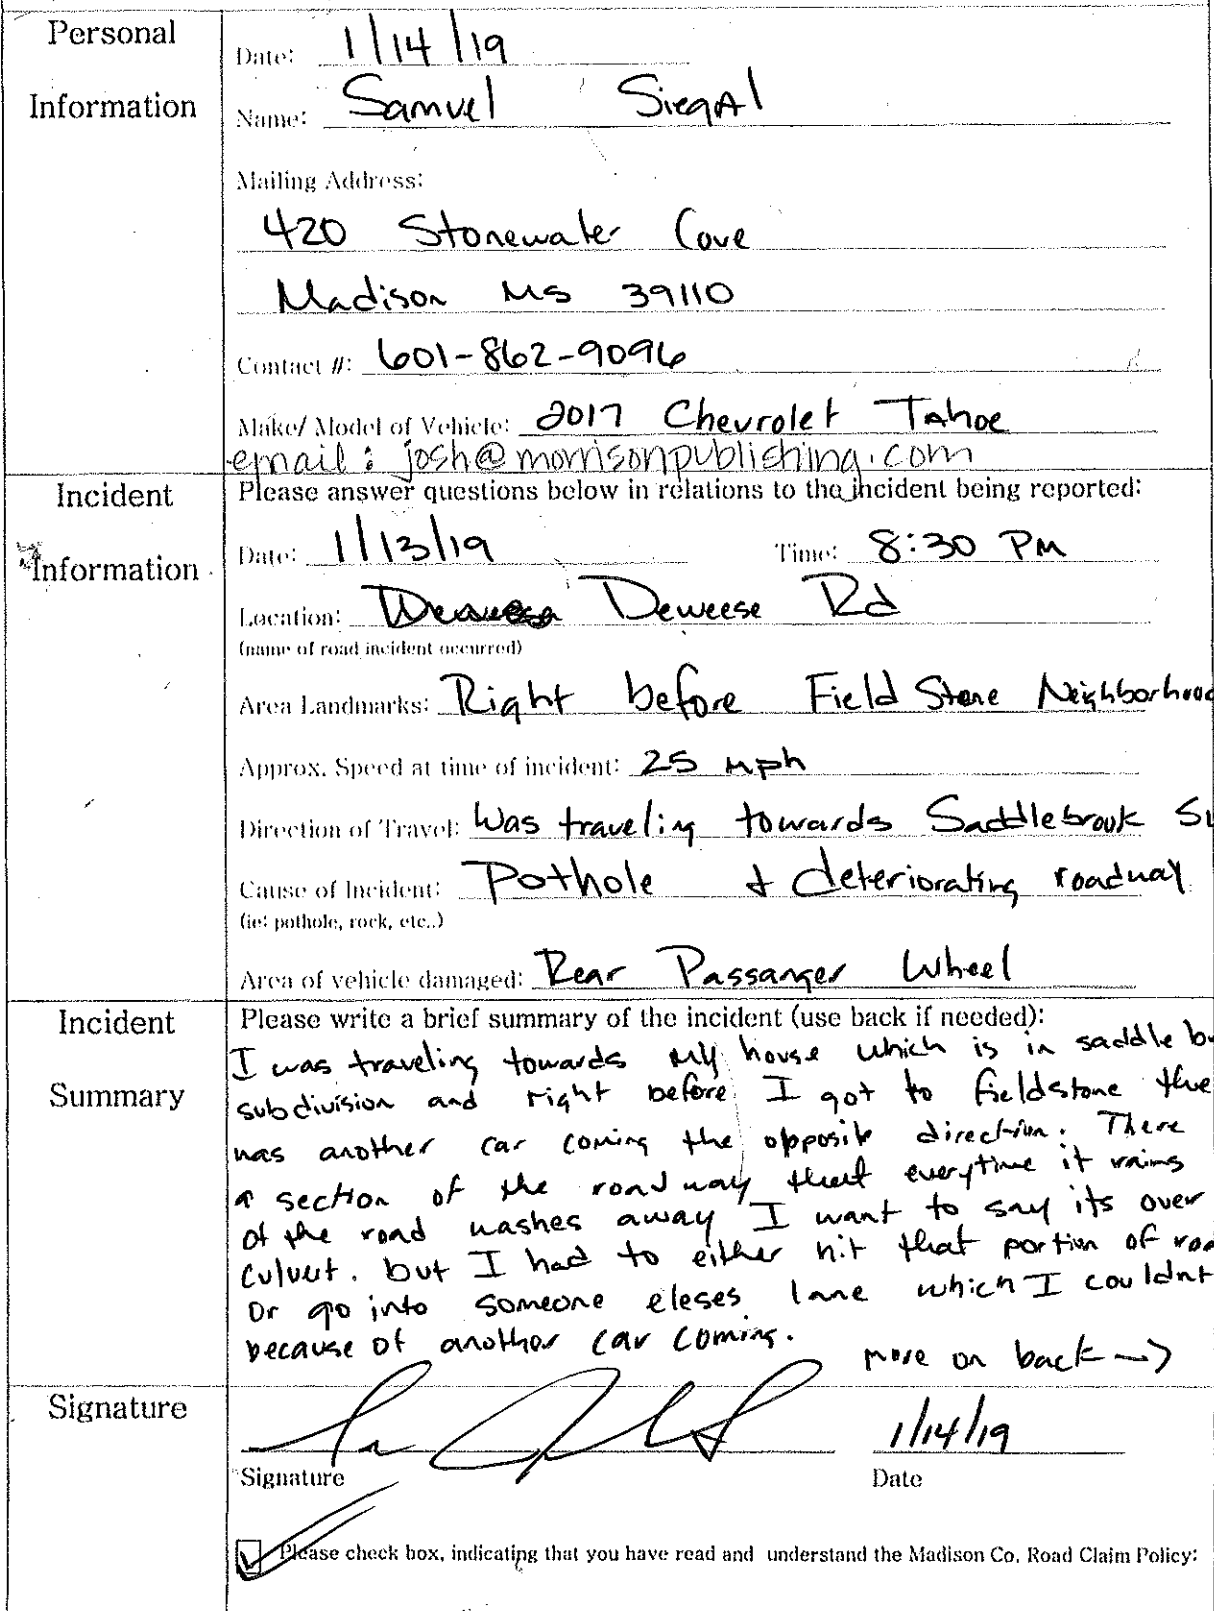 Personal
Information
Date: 1/14/19
Name: Samuel Siegal
Mailing Address:
420 Stonewater Cove
Madison MS 39110
Contact #: 601-862-9096
Make/ Model of Vehicle: 2017 Chevrolet Tahoe
email: josh@morrisonpublishing.com
Incident
Information
Please answer questions below in relations to the incident being reported:
Date: 1/13/19 Time: 8:30 PM
Location: Deweese Rd
(name of road incident occurred)
Area Landmarks: Right before Field Stone Neighborhood
Approx. Speed at time of incident: 25 mph
Direction of Travel: Was traveling towards Saddlebrook Su
Cause of Incident: Pothole & deteriorating roadway
(ie: pothole, rock, etc..)
Area of vehicle damaged: Rear Passanger Wheel
Incident
Summary
Please write a brief summary of the incident (use back if needed):
I was traveling towards my house which is in saddle b
subdivision and right before I got to fieldstone the
was another car coming the opposite direction. There
a section of the roadway that everytime it rains
of the road washes away I want to say its over
culvert. but I had to either hit that portion of roa
Or go into someone eleses lane which I couldnt
because of another car coming.
more on back →
Signature
1/14/19
Signature Date
Please check box, indicating that you have read and understand the Madison Co. Road Claim Policy: